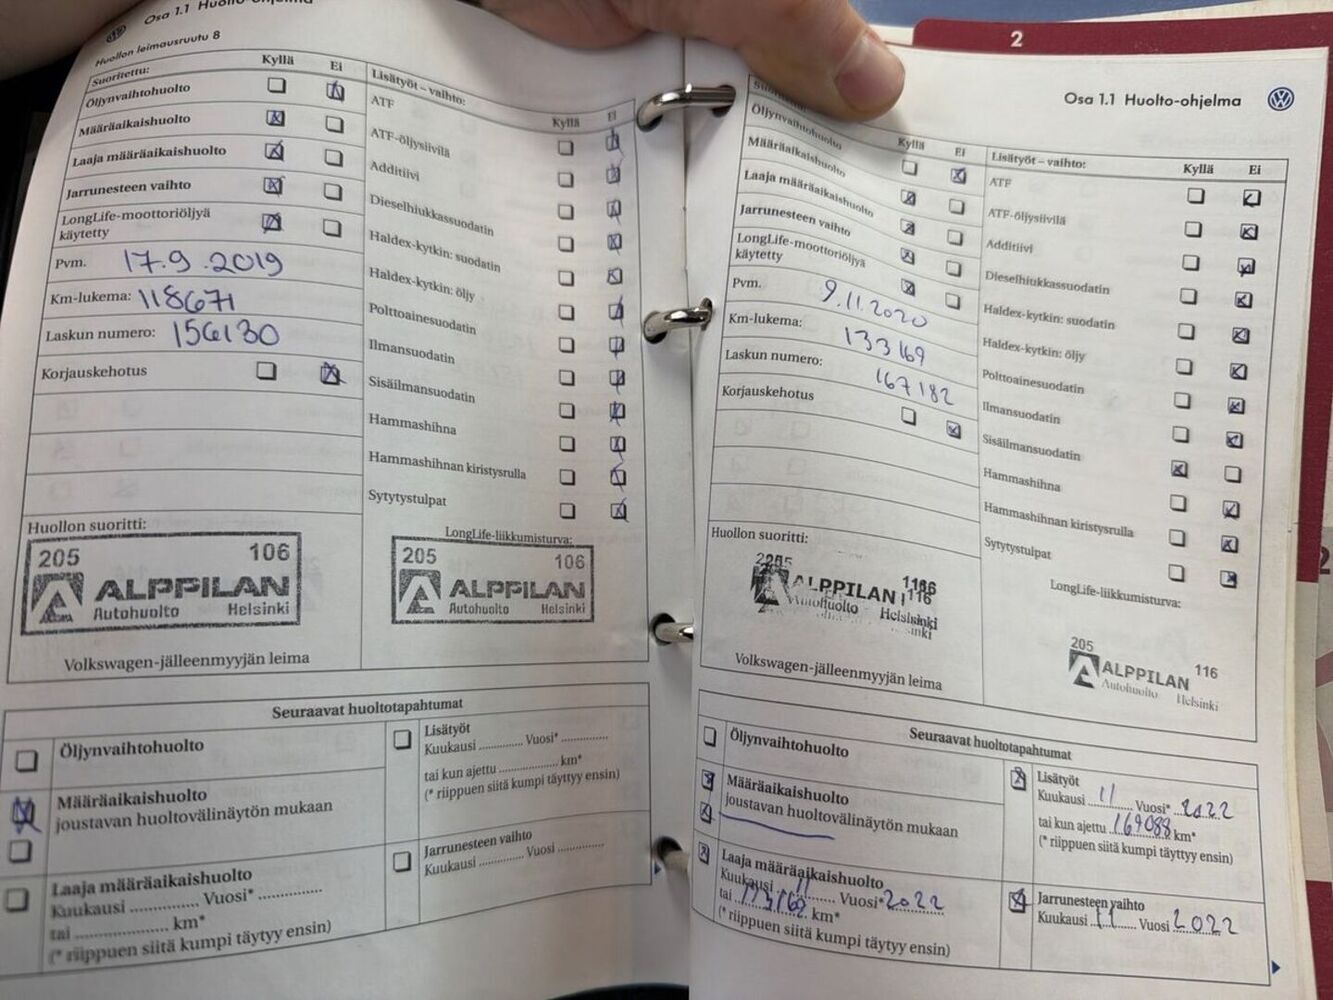 Osa 1.1 Huolto-ohjelma
Huollon leimausruutu 8
Suoritettu:
Kyllä Ei
Öljynvaihtohuolto
Määräaikaishuolto
Laaja määräaikaishuolto
Jarrunesteen vaihto
LongLife-moottoriöljyä
käytetty
Pvm. 17.9.2019
Km-lukema: 118671
Laskun numero: 156130
Korjauskehotus
Huollon suoritti:
205 106
ALPPILAN
Autohuolto Helsinki
Volkswagen-jälleenmyyjän leima
Lisätyöt – vaihto:
Kyllä Ei
ATF
ATF-öljysiivilä
Additiivi
Dieselhiukkassuodatin
Haldex-kytkin: suodatin
Haldex-kytkin: öljy
Polttoainesuodatin
Ilmansuodatin
Sisäilmansuodatin
Hammashihna
Hammashihnan kiristysrulla
Sytytystulpat
LongLife-liikkumisturva:
205 106
ALPPILAN
Autohuolto Helsinki
Seuraavat huoltotapahtumat
Öljynvaihtohuolto
Määräaikaishuolto
joustavan huoltovälinäytön mukaan
Laaja määräaikaishuolto
Kuukausi .............. Vuosi* ..............
tai .................... km*
(* riippuen siitä kumpi täytyy ensin)
Lisätyöt
Kuukausi ............ Vuosi* ............
tai kun ajettu ................ km*
(* riippuen siitä kumpi täyttyy ensin)
Jarrunesteen vaihto
Kuukausi ............ Vuosi ............
2
Osa 1.1 Huolto-ohjelma
Kyllä Ei
Öljynvaihtohuolto
Määräaikaishuolto
Laaja määräaikaishuolto
Jarrunesteen vaihto
LongLife-moottoriöljyä
käytetty
Pvm. 9.11.2020
Km-lukema: 133169
Laskun numero: 167182
Korjauskehotus
Huollon suoritti:
ALPPILAN
Autohuolto Helsinki
Volkswagen-jälleenmyyjän leima
Lisätyöt – vaihto:
Kyllä Ei
ATF
ATF-öljysiivilä
Additiivi
Dieselhiukkassuodatin
Haldex-kytkin: suodatin
Haldex-kytkin: öljy
Polttoainesuodatin
Ilmansuodatin
Sisäilmansuodatin
Hammashihna
Hammashihnan kiristysrulla
Sytytystulpat
LongLife-liikkumisturva:
205 116
ALPPILAN
Autohuolto Helsinki
Seuraavat huoltotapahtumat
Öljynvaihtohuolto
Määräaikaishuolto
joustavan huoltovälinäytön mukaan
Laaja määräaikaishuolto
Kuukausi 11 Vuosi* 2022
tai km*
(* riippuen siitä kumpi täytyy ensin)
Lisätyöt
Kuukausi 11 Vuosi* 2022
tai kun ajettu 169088 km*
(* riippuen siitä kumpi täyttyy ensin)
Jarrunesteen vaihto
Kuukausi 11 Vuosi 2022
2